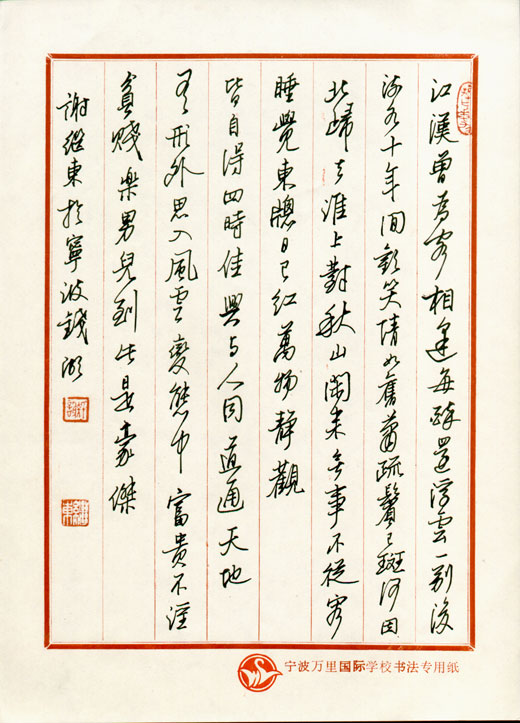 江漢曾为客相逢每醉還浮雲一别後
流水十年间歡笑情如舊蕭疏鬢已斑何因
北歸去淮上對秋山闲来無事不從容
睡覺東牕日已红萬物静觀
皆自得四時佳興与人同道通天地
有形外思入風雲變態中富貴不淫
貧賤樂男兒到此是豪傑
謝继東於寧波錢湖
宁波万里国际学校书法专用纸